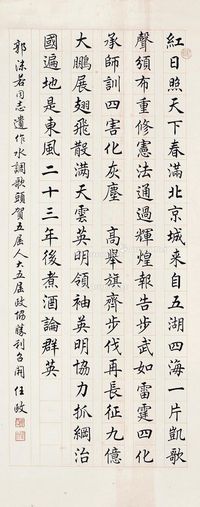 紅日照天下春滿北京城来自五湖四海一片凱歌
聲頌布重修憲法通過輝煌報告步武如雷霆四化
承師訓四害化灰塵 高舉旗齊步伐再長征九億
大鵬展翅飛散满天雲英明領袖英明協力抓綱治
國遍地是東風二十三年後煮酒論群英
郭沫若同志遺作水調歌頭賀五届人大五届政協勝利召開 任政